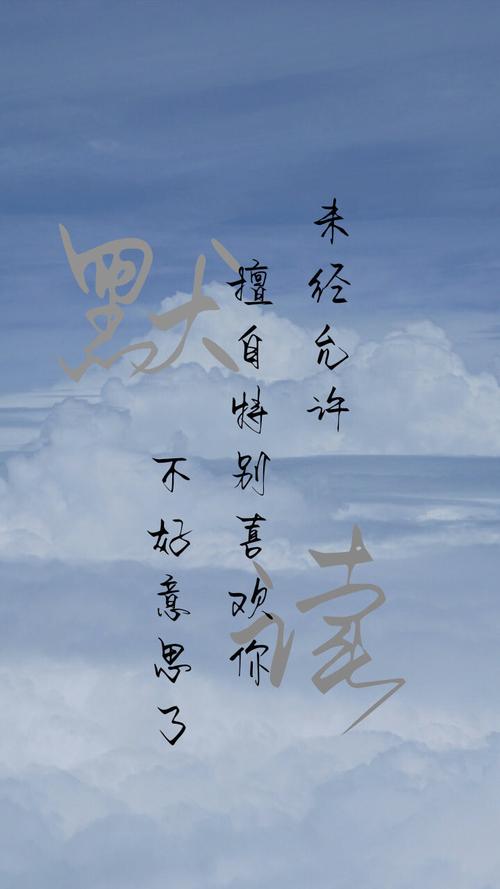 默读
未经允许
擅自特别喜欢你
不好意思了